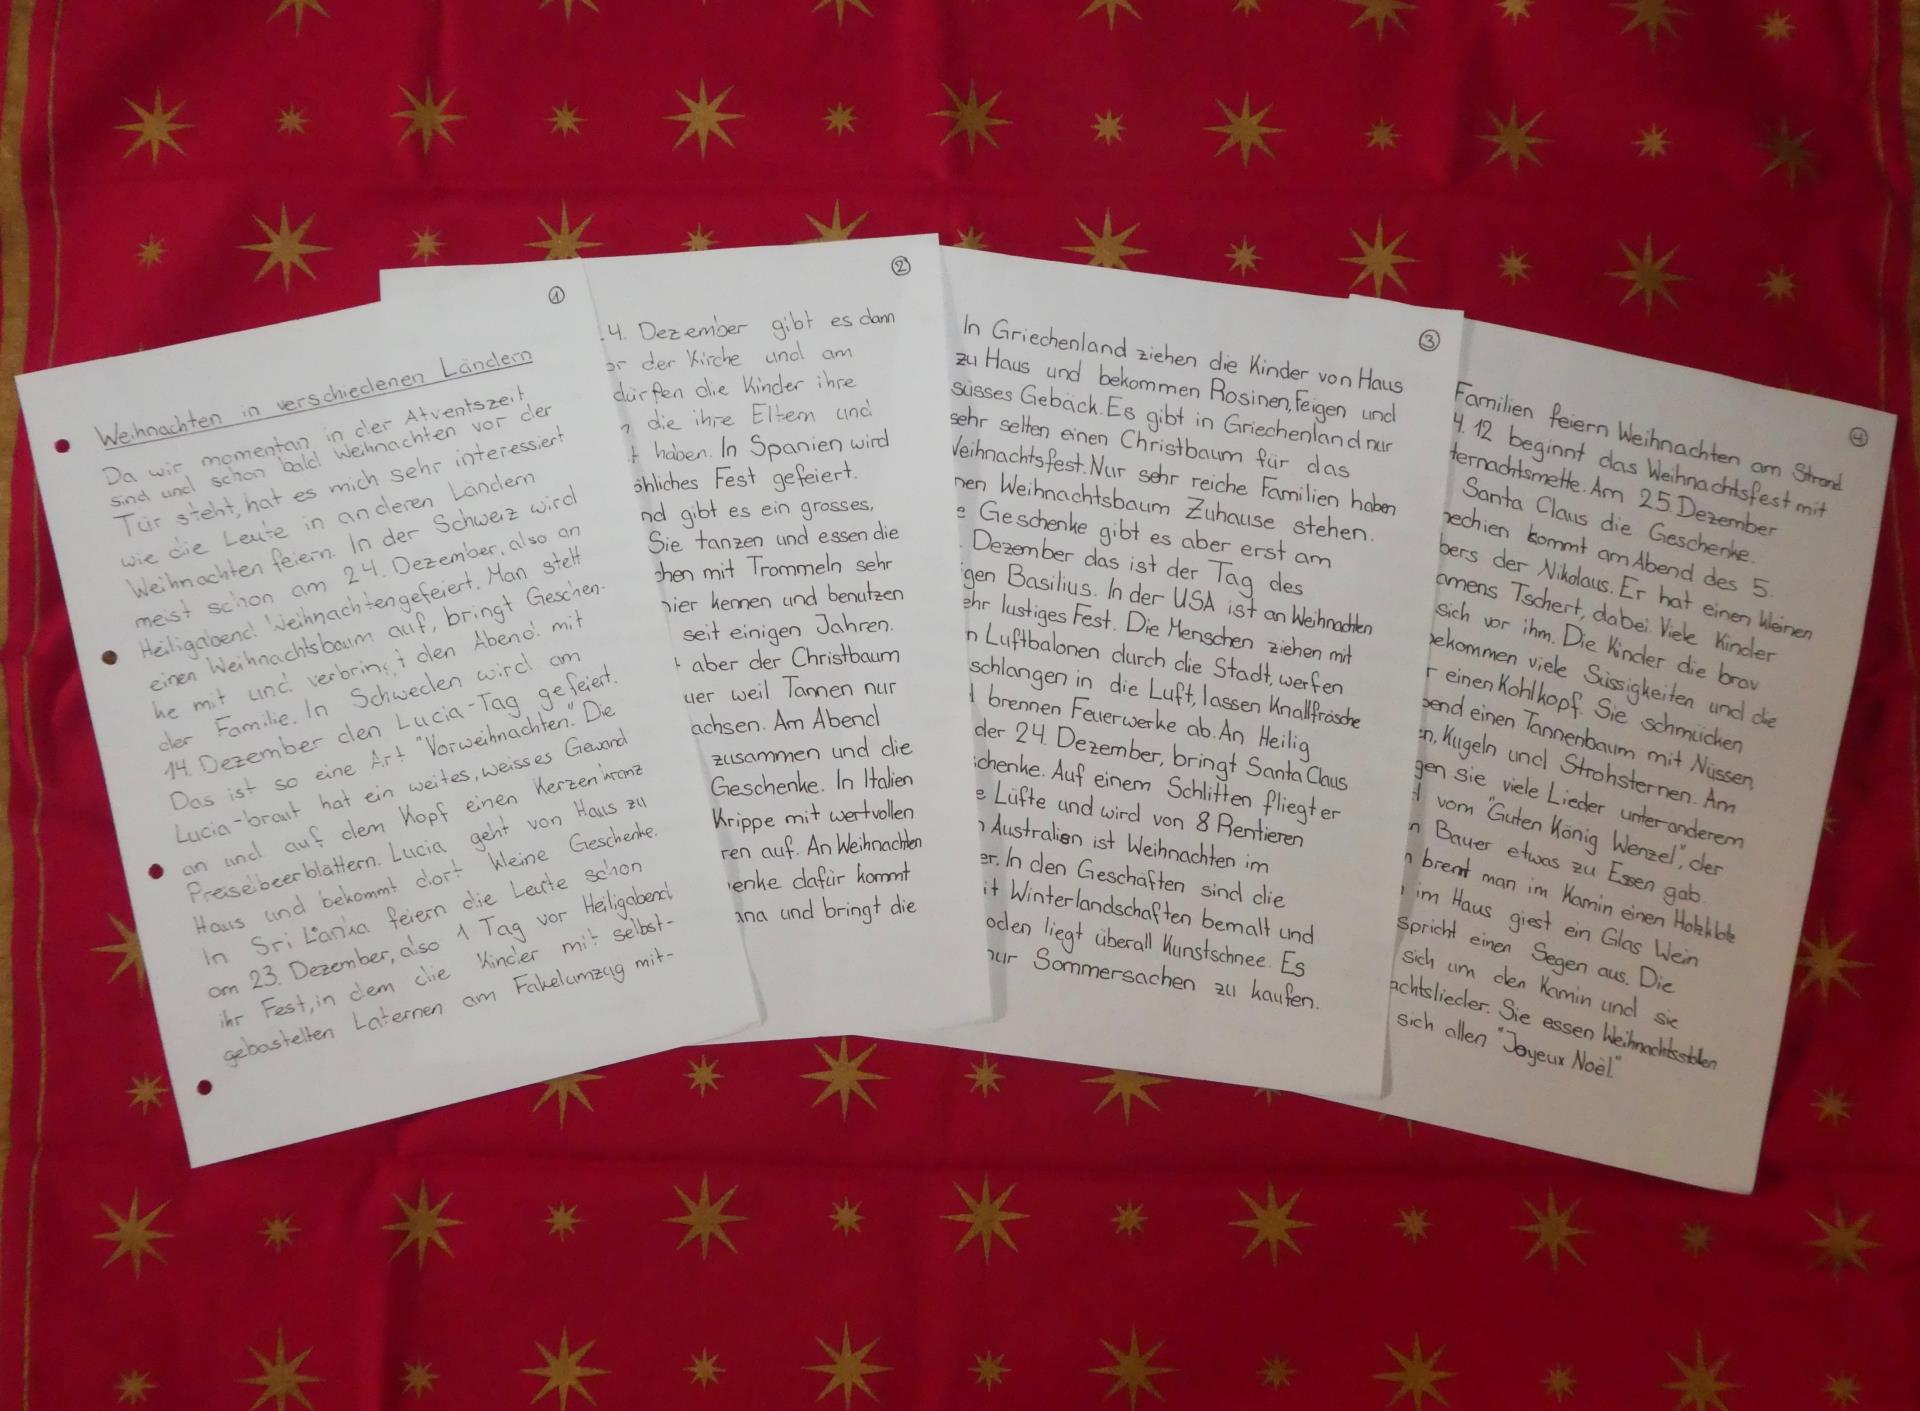 ①
Weihnachten in verschiedenen Ländern
Da wir momentan in der Atventszeit
sind und schon bald Weihnachten vor der
Tür steht, hat es mich sehr interessiert
wie die Leute in anderen Ländern
Weihnachten feiern. In der Schweiz wird
meist schon am 24. Dezember, also an
Heiligabend Weihnachten gefeiert. Man stelt
einen Weihnachtsbaum auf, bringt Geschen-
ke mit und verbringt den Abend mit
der Familie. In Schweden wird am
14. Dezember den Lucia-Tag gefeiert.
Das ist so eine Art "Vorweihnachten". Die
Lucia-braut hat ein weites, weisses Gewand
an und auf dem Kopf einen Kerzenkranz
Preiselbeerblättern. Lucia geht von Haus zu
Haus und bekommt dort kleine Geschenke.
In Sri Lanka feiern die Leute schon
am 23. Dezember, also 1 Tag vor Heiligabend
ihr Fest, in dem die Kinder mit selbst-
gebastelten Laternen am Fakelumzug mit-
②
4. Dezember gibt es dann
or der Kirche und am
dürfen die Kinder ihre
die ihre Eltern und
t haben. In Spanien wird
öhliches Fest gefeiert.
nd gibt es ein grosses,
Sie tanzen und essen die
chen mit Trommeln sehr
hier kennen und benutzen
seit einigen Jahren.
t aber der Christbaum
uer weil Tannen nur
achsen. Am Abend
zusammen und die
Geschenke. In Italien
Krippe mit wertvollen
ren auf. An Weihnachten
enke dafür kommt
ana und bringt die
③
In Griechenland ziehen die Kinder von Haus
zu Haus und bekommen Rosinen, Feigen und
süsses Gebäck. Es gibt in Griechenland nur
sehr selten einen Christbaum für das
Weihnachtsfest. Nur sehr reiche Familien haben
nen Weihnachtsbaum Zuhause stehen.
e Geschenke gibt es aber erst am
. Dezember das ist der Tag des
igen Basilius. In der USA ist an Weihnachten
ehr lustiges Fest. Die Menschen ziehen mit
n Luftbalonen durch die Stadt, werfen
schlangen in die Luft, lassen Knallfrösche
d brennen Feuerwerke ab. An Heilig
der 24. Dezember, bringt Santa Claus
schenke. Auf einem Schlitten fliegt er
e Lüfte und wird von 8 Rentieren
n Australien ist Weihnachten im
er. In den Geschäften sind die
it Winterlandschaften bemalt und
oden liegt überall Kunstschnee. Es
nur Sommersachen zu kaufen.
④
Familien feiern Weihnachten am Strand
4.12 beginnt das Weihnachtsfest mit
ternachtsmette. Am 25. Dezember
Santa Claus die Geschenke.
hechien kommt am Abend des 5.
bers der Nikolaus. Er hat einen kleinen
amens Tschert, dabei. Viele Kinder
sich vor ihm. Die Kinder die brav
bekommen viele Süssigkeiten und die
r einen Kohlkopf. Sie schmücken
bend einen Tannenbaum mit Nüssen,
en, Kugeln und Strohsternen. Am
gen sie viele Lieder unter anderem
d vom "Guten König Wenzel", der
n Bauer etwas zu Essen gab.
n brent man im Kamin einen Holzklotz
im Haus giest ein Glas Wein
spricht einen Segen aus. Die
sich um den Kamin und sie
achtslieder. Sie essen Weihnachtsstolen
sich allen "Joyeux Noël."